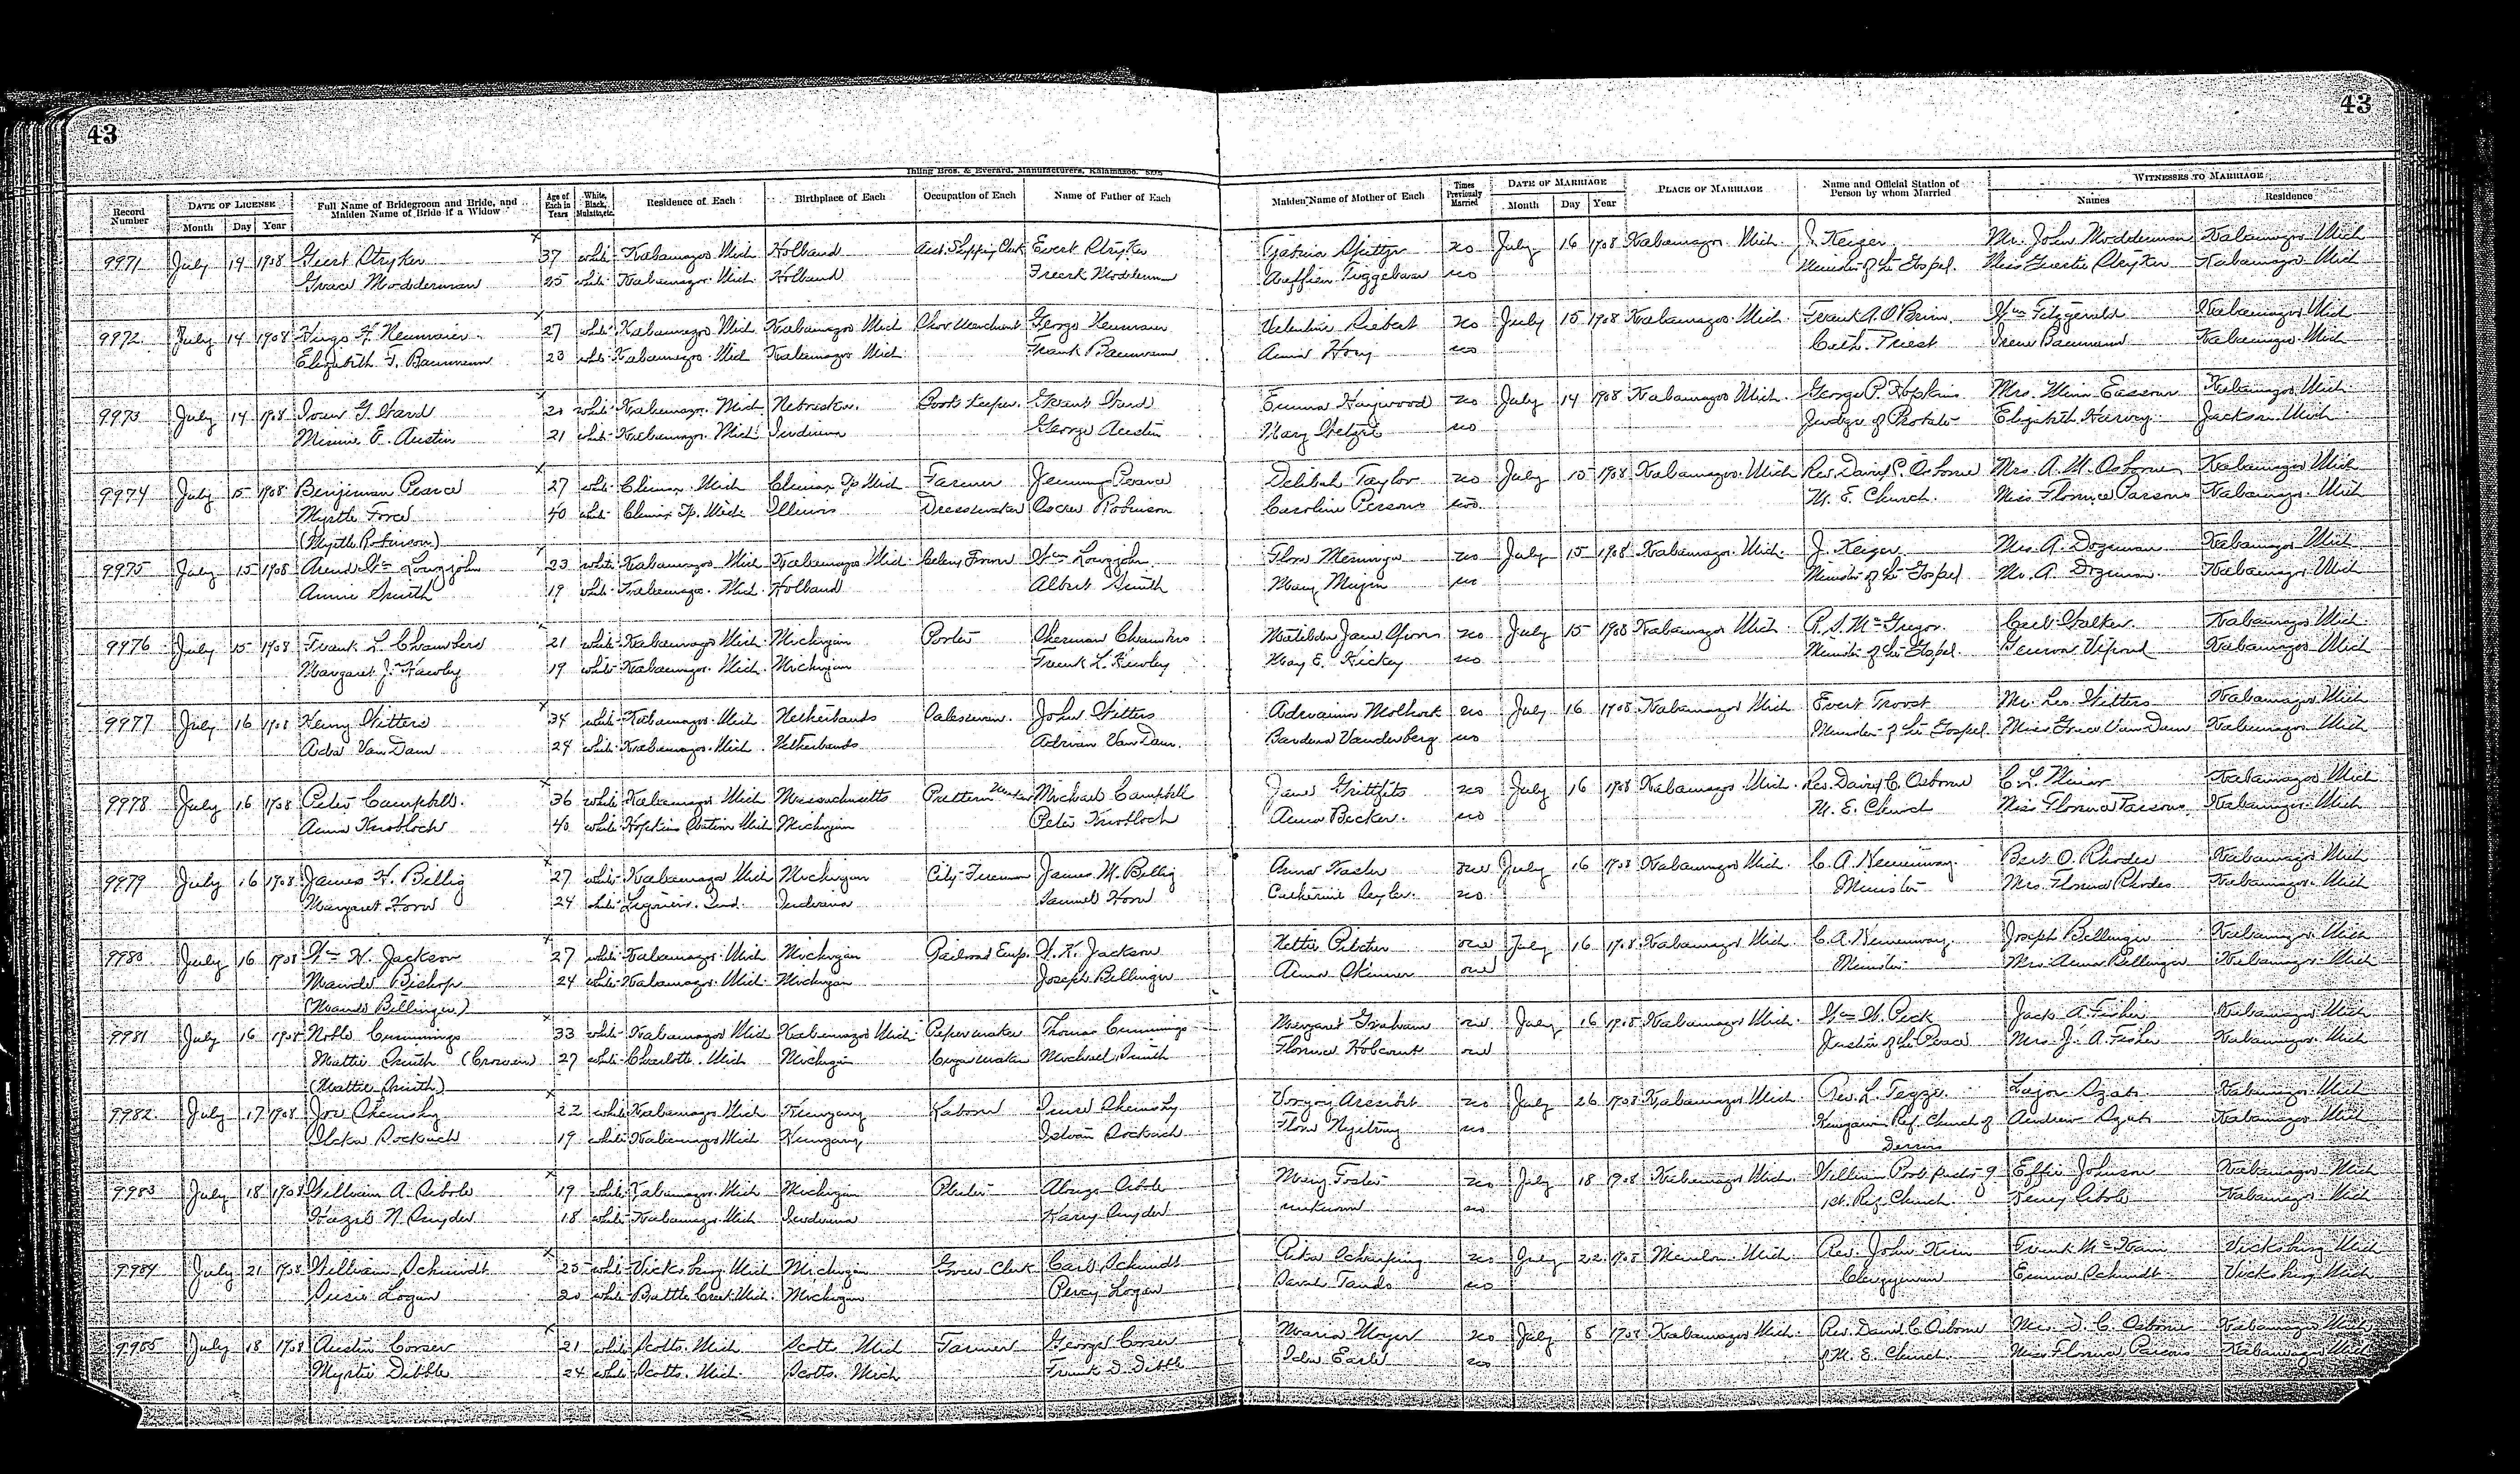 43
43
Ihling Bros. & Everard, Manufacturers, Kalamazoo.
Record Number
DATE OF LICENSE
Month Day Year
Full Name of Bridegroom and Bride, and Maiden Name of Bride if a Widow
Age of Each in Years
White, Black, Mulatto, etc.
Residence of Each
Birthplace of Each
Occupation of Each
Name of Father of Each
Maiden Name of Mother of Each
Times Previously Married
DATE OF MARRIAGE
Month Day Year
PLACE OF MARRIAGE
Name and Official Station of Person by whom Married
WITNESSES TO MARRIAGE
Names Residence
9971 July 14 1908 Geert Stryker 37 white Kalamazoo Mich Holland Asst. Shipping Clerk Evert Stryker no July 16 1908 Kalamazoo Mich. J. Keizer Mr. John Modderman Kalamazoo Mich
Grace Modderman 25 white Kalamazoo Mich Holland no Minister of the Gospel. Miss Stryker Kalamazoo Mich
9972 July 14 1908 Hugo H. Neumaier 27 white Kalamazoo Mich Kalamazoo Mich Merchant George Neumaier no July 15 1908 Kalamazoo Mich. Frank A. O'Brien Wm Fitzgerald Kalamazoo Mich
Elizabeth F. Baumann 23 white Kalamazoo Mich Kalamazoo Mich Frank Baumann no Cath. Priest Irene Baumann Kalamazoo Mich
9973 July 14 1908 G. Ward 20 white Kalamazoo Mich Nebraska Book Keeper Grant Ward Emma Haywood no July 14 1908 Kalamazoo Mich. George P. Hopkins Mrs. Kalamazoo Mich
Minnie E. Austin 21 white Kalamazoo Mich Indiana George Austin Mary no Judge of Probate Elizabeth Harvey Jackson Mich
9974 July 15 1908 Benjiman Pearce 27 white Climax Mich Climax Tp Mich Farmer Pearce Delilah Taylor no July 15 1908 Kalamazoo Mich Rev. David C. Osborne Mrs. A. M. Osborne Kalamazoo Mich
Myrtle Force 40 white Climax Tp. Mich Illinois Dressmaker Oscar Robinson Caroline Persons M. E. Church. Miss Florence Parsons Kalamazoo Mich
(Myrtle Robinson)
9975 July 15 1908 Arend Wm 23 white Kalamazoo Mich Kalamazoo Mich Celery Farmer Wm no July 15 1908 Kalamazoo Mich. J. Keizer Mrs. A. Dozeman Kalamazoo Mich
Annie Smith 19 white Kalamazoo Mich. Holland Albert Smith Mary no Minister of the Gospel Mr. A. Dozeman Kalamazoo Mich
9976 July 15 1908 Frank L. Chambers 21 white Kalamazoo Mich Michigan Porter Sherman Chambers Matilda Jane no July 15 1908 Kalamazoo Mich R. S. McGregor Carl Kalamazoo Mich
Margaret J. Hawley 19 white Kalamazoo Mich. Michigan Frank L. Hawley May E. Hickey no Minister of the Gospel. Kalamazoo Mich
9977 July 16 1908 Henry Witters 34 white Kalamazoo Mich Netherlands Salesman John Witters no July 16 1908 Kalamazoo Mich Evert Troost Mr. Leo Witters Kalamazoo Mich
Ada Van Dam 24 white Kalamazoo Mich. Netherlands Adrian Van Dam Vanderberg no Minister of the Gospel. Miss Grace Van Dam Kalamazoo Mich
9978 July 16 1908 Peter Campbell 36 white Kalamazoo Mich Massachusetts Pattern Maker Michael Campbell Jane Griffits no July 16 1908 Kalamazoo Mich. Rev. David C. Osborne C. L. Miner Kalamazoo Mich
Anna Knobloch 40 white Hopkins Station Mich Michigan Peter Knobloch Anna Becker no M. E. Church Miss Florence Parsons Kalamazoo Mich
9979 July 16 1908 James H. Billig 27 white Kalamazoo Mich Michigan City Fireman James M. Billig Anna one July 16 1908 Kalamazoo Mich. C. A. Hemenway Bert O. Rhodes Kalamazoo Mich
Margaret Horn 24 white Ligonier, Ind. Indiana Samuel Horn Catherine no Minister Mrs. Florence Rhodes Kalamazoo Mich
9980 July 16 1908 Wm H. Jackson 27 white Kalamazoo Mich Michigan Railroad Emp. Jackson Nettie one July 16 1908 Kalamazoo Mich. C. A. Hemenway Joseph Bellinger Kalamazoo Mich
Maude Bishop 24 white Kalamazoo Mich. Michigan Joseph Bellinger Anna Skinner one Minister Mrs. Anna Bellinger Kalamazoo Mich
(Maude Bellinger)
9981 July 16 1908 Noble Cummings 33 white Kalamazoo Mich Kalamazoo Mich Paper maker Thomas Cummings Margaret Graham one July 16 1908 Kalamazoo Mich. Wm W. Peck Jack A. Fisher Kalamazoo Mich
Mattie Smith 27 white Charlotte Mich Michigan Cigar maker Michael Smith Florence one Justice of the Peace Mrs. J. A. Fisher Kalamazoo Mich
(Mattie Smith)
9982 July 17 1908 Joe 22 white Kalamazoo Mich Hungary Labor no July 26 1908 Kalamazoo Mich Rev. L. Kalamazoo Mich
19 white Kalamazoo Mich Hungary no Ref. Church of Andrew Kalamazoo Mich
9983 July 18 1908 William A. 19 white Kalamazoo Mich Michigan Mary Foster no July 18 1908 Kalamazoo Mich. William Effie Johnson Kalamazoo Mich
Hazel N. Snyder 18 white Kalamazoo Mich Indiana Harry Snyder unknown no 1st. Ref. Church Kalamazoo Mich
9984 July 21 1908 William Schmidt 25 white Vicksburg Mich Michigan Grocer Clerk Carl Schmidt no July 22 1908 Mendon Mich. Rev. John Frank McKain Vicksburg Mich
Susie Logan 20 white Battle Creek Mich. Michigan Percy Logan Sarah no Clergyman Emma Schmidt Vicksburg Mich
9985 July 18 1908 Austin Corser 21 white Scotts, Mich Scotts Mich Farmer George Corser Maria Moyer no July 8 1908 Kalamazoo Mich. Rev. David C. Osborne Mrs. D. C. Osborne Kalamazoo Mich
Myrtie Dibble 24 white Scotts, Mich. Scotts, Mich Frank D. Dibble Earl no M. E. Church. Miss Florence Parsons Kalamazoo Mich